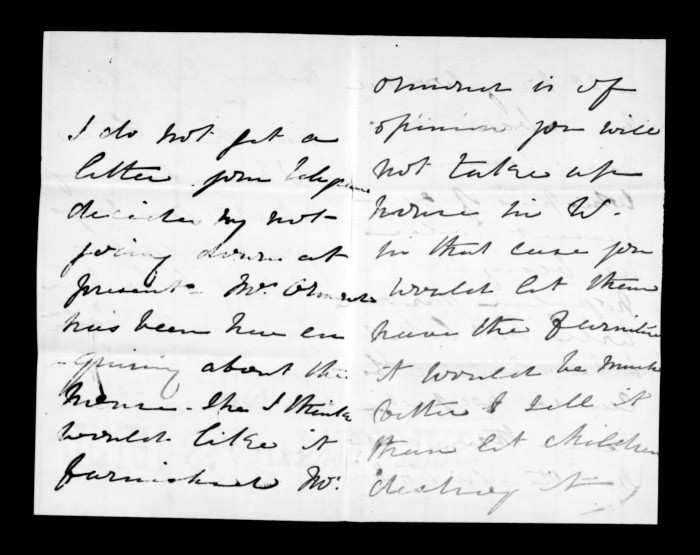 I do not get a
letter your telegram
decides my not
going down at
present - Mrs Ormond
has been here en
-quiring about the
house - She I think
would like it
furnished Mr.
Ormond is of
opinion you will
not take up
house in W.
in that case you
would let them
have the furniture
it would be much
better to sell it
than let children
destroy it